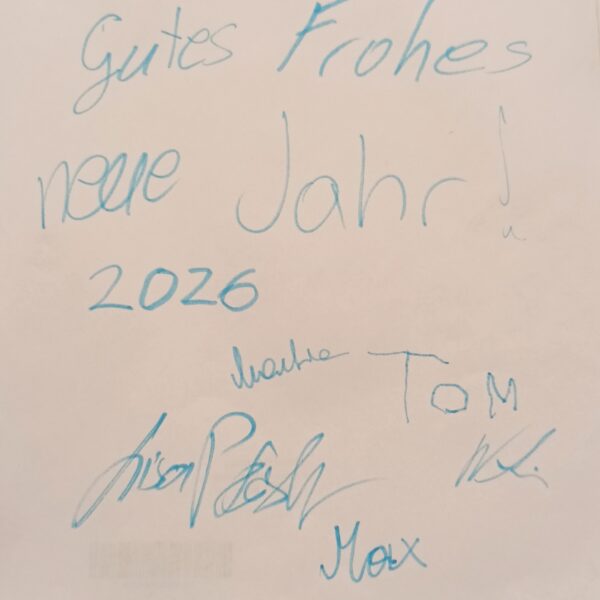 Gutes Frohes
neue Jahr!
2026
Martina TOM
Lisa
Max